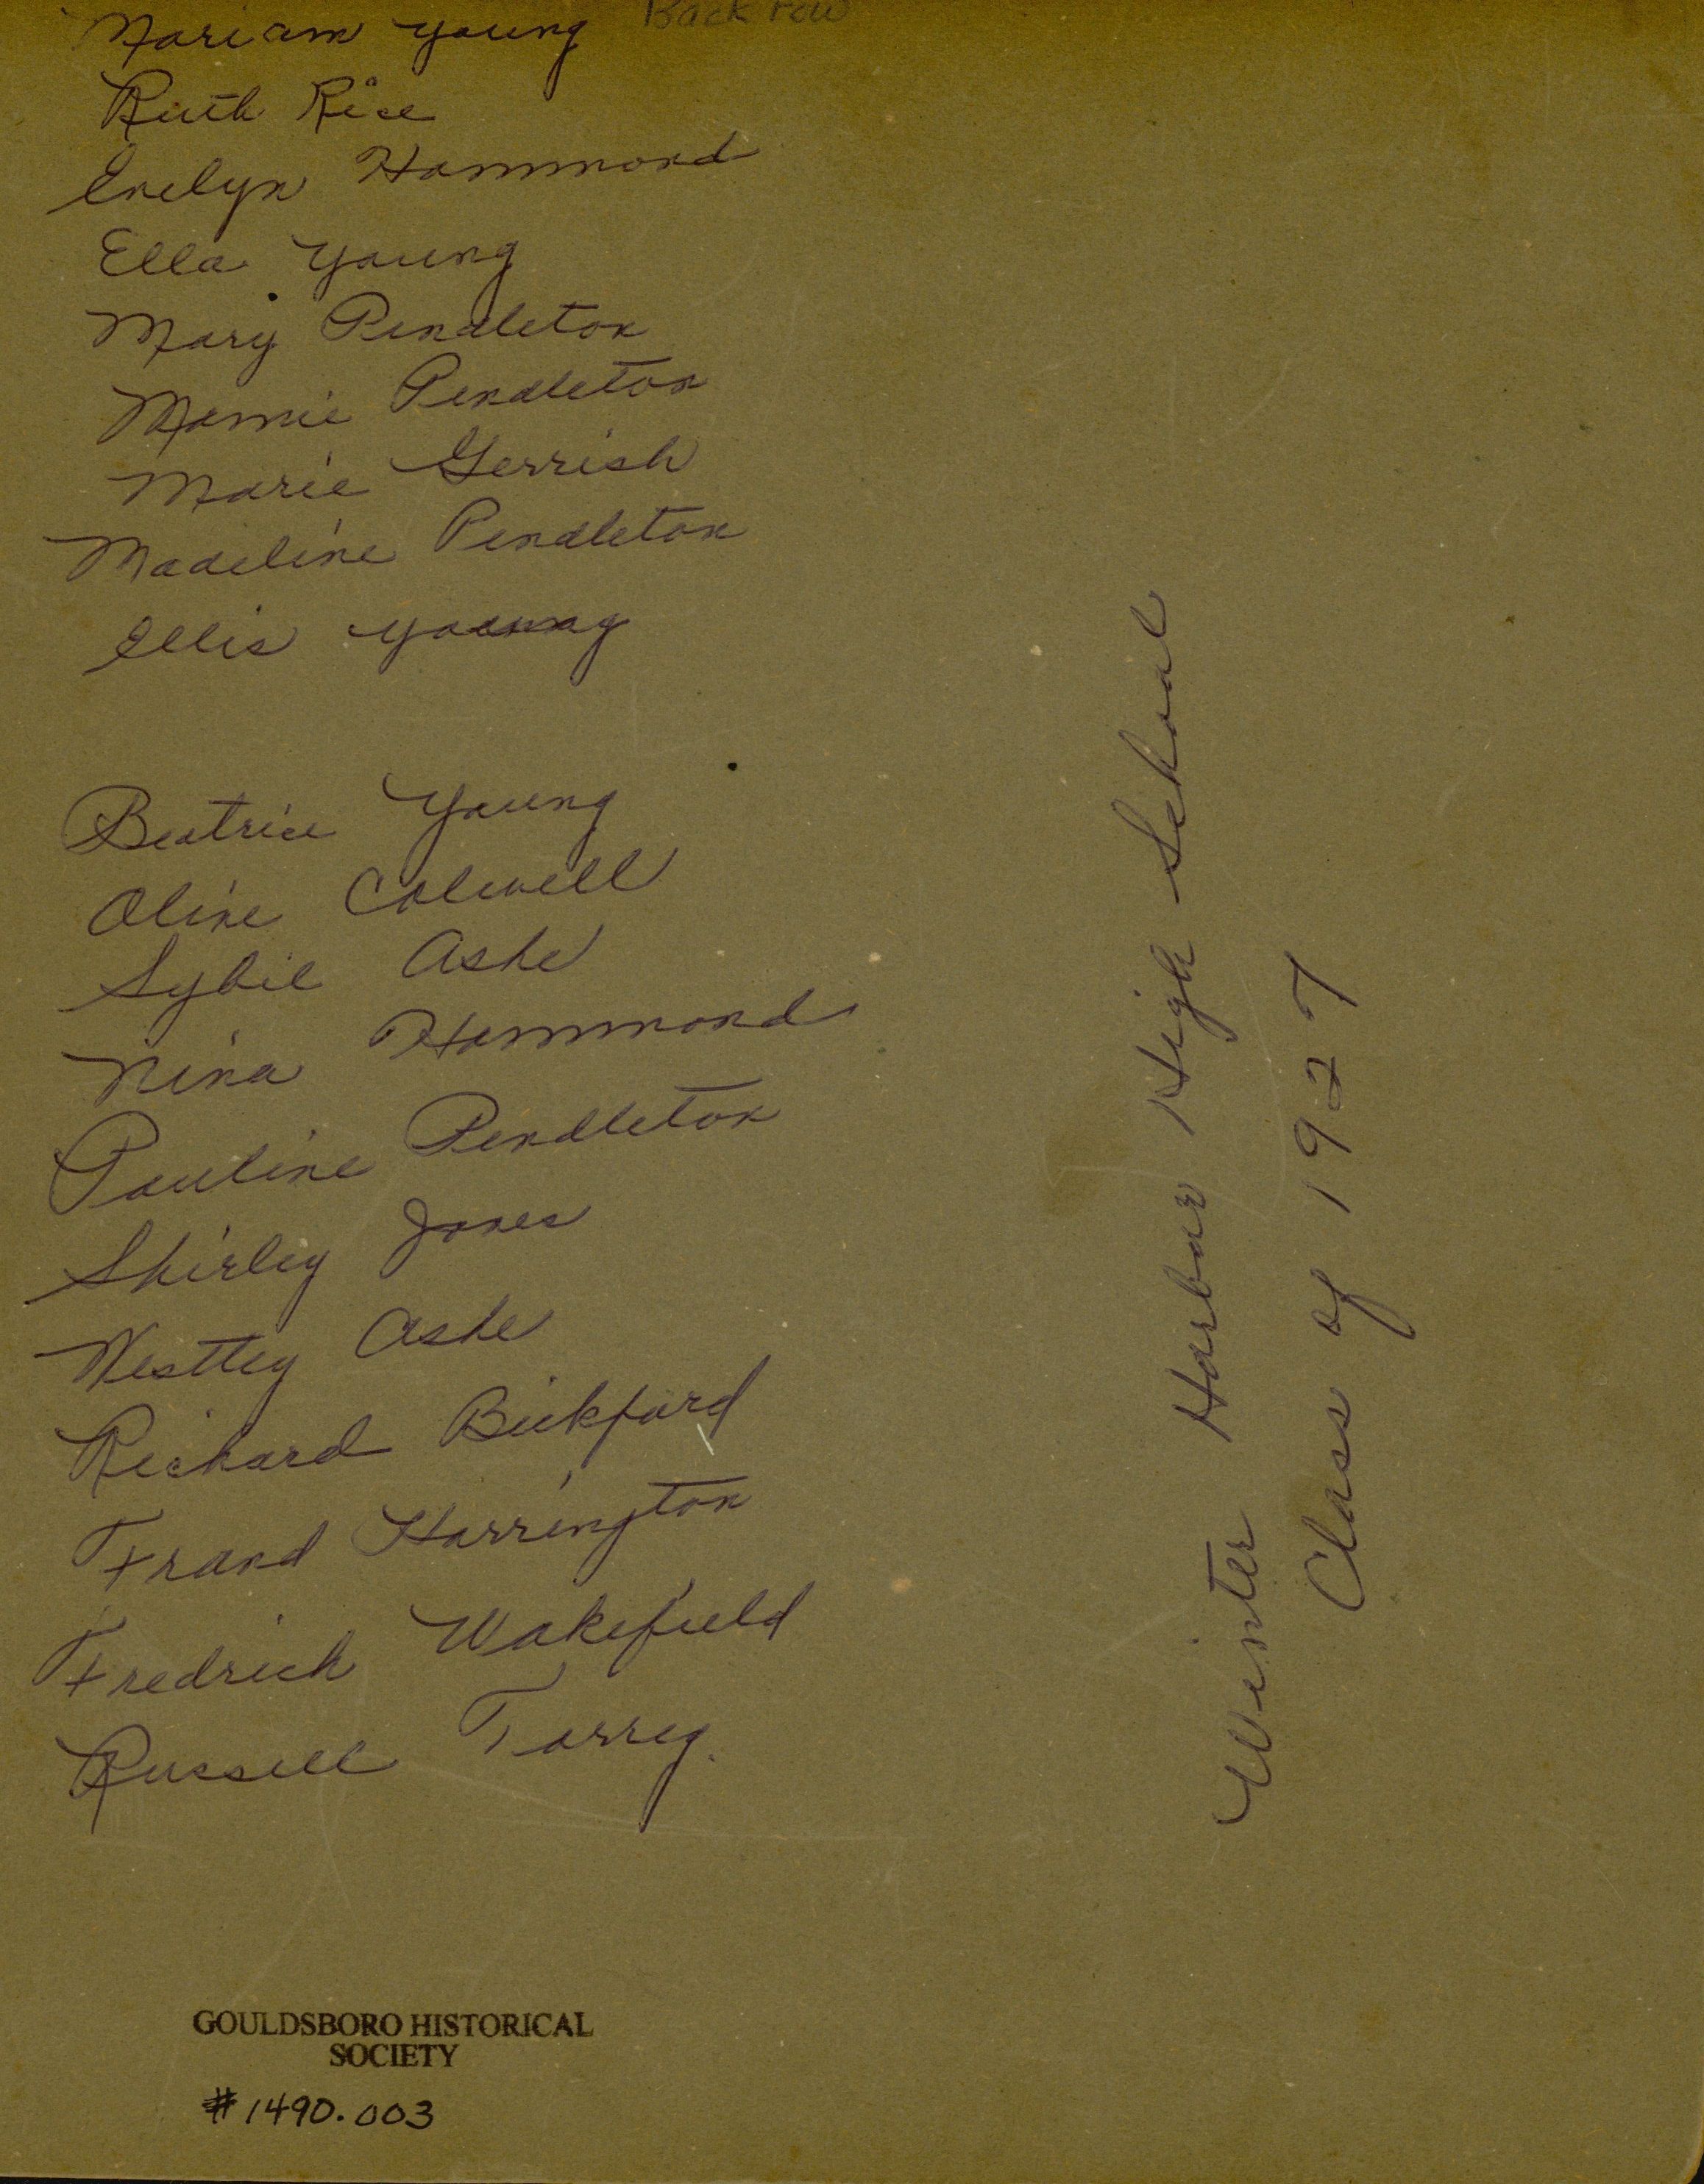 Mariam Young Back row
Ruth Rice
Evelyn Hammond
Ella Young
Mary Pendleton
Mamie Pendleton
Marie Gerrish
Madeline Pendleton
Ellis Young
Beatrice Young
Oline Colwell
Sybil Ashe
Nina Hammond
Pauline Pendleton
Shirley Jones
Westtey Ashe
Richard Bickford
Frand Harrington
Fredrich Wakefield
Russell Torrey.
Winter Harbor High School
Class of 1927
GOULDSBORO HISTORICAL
SOCIETY
#1490.003